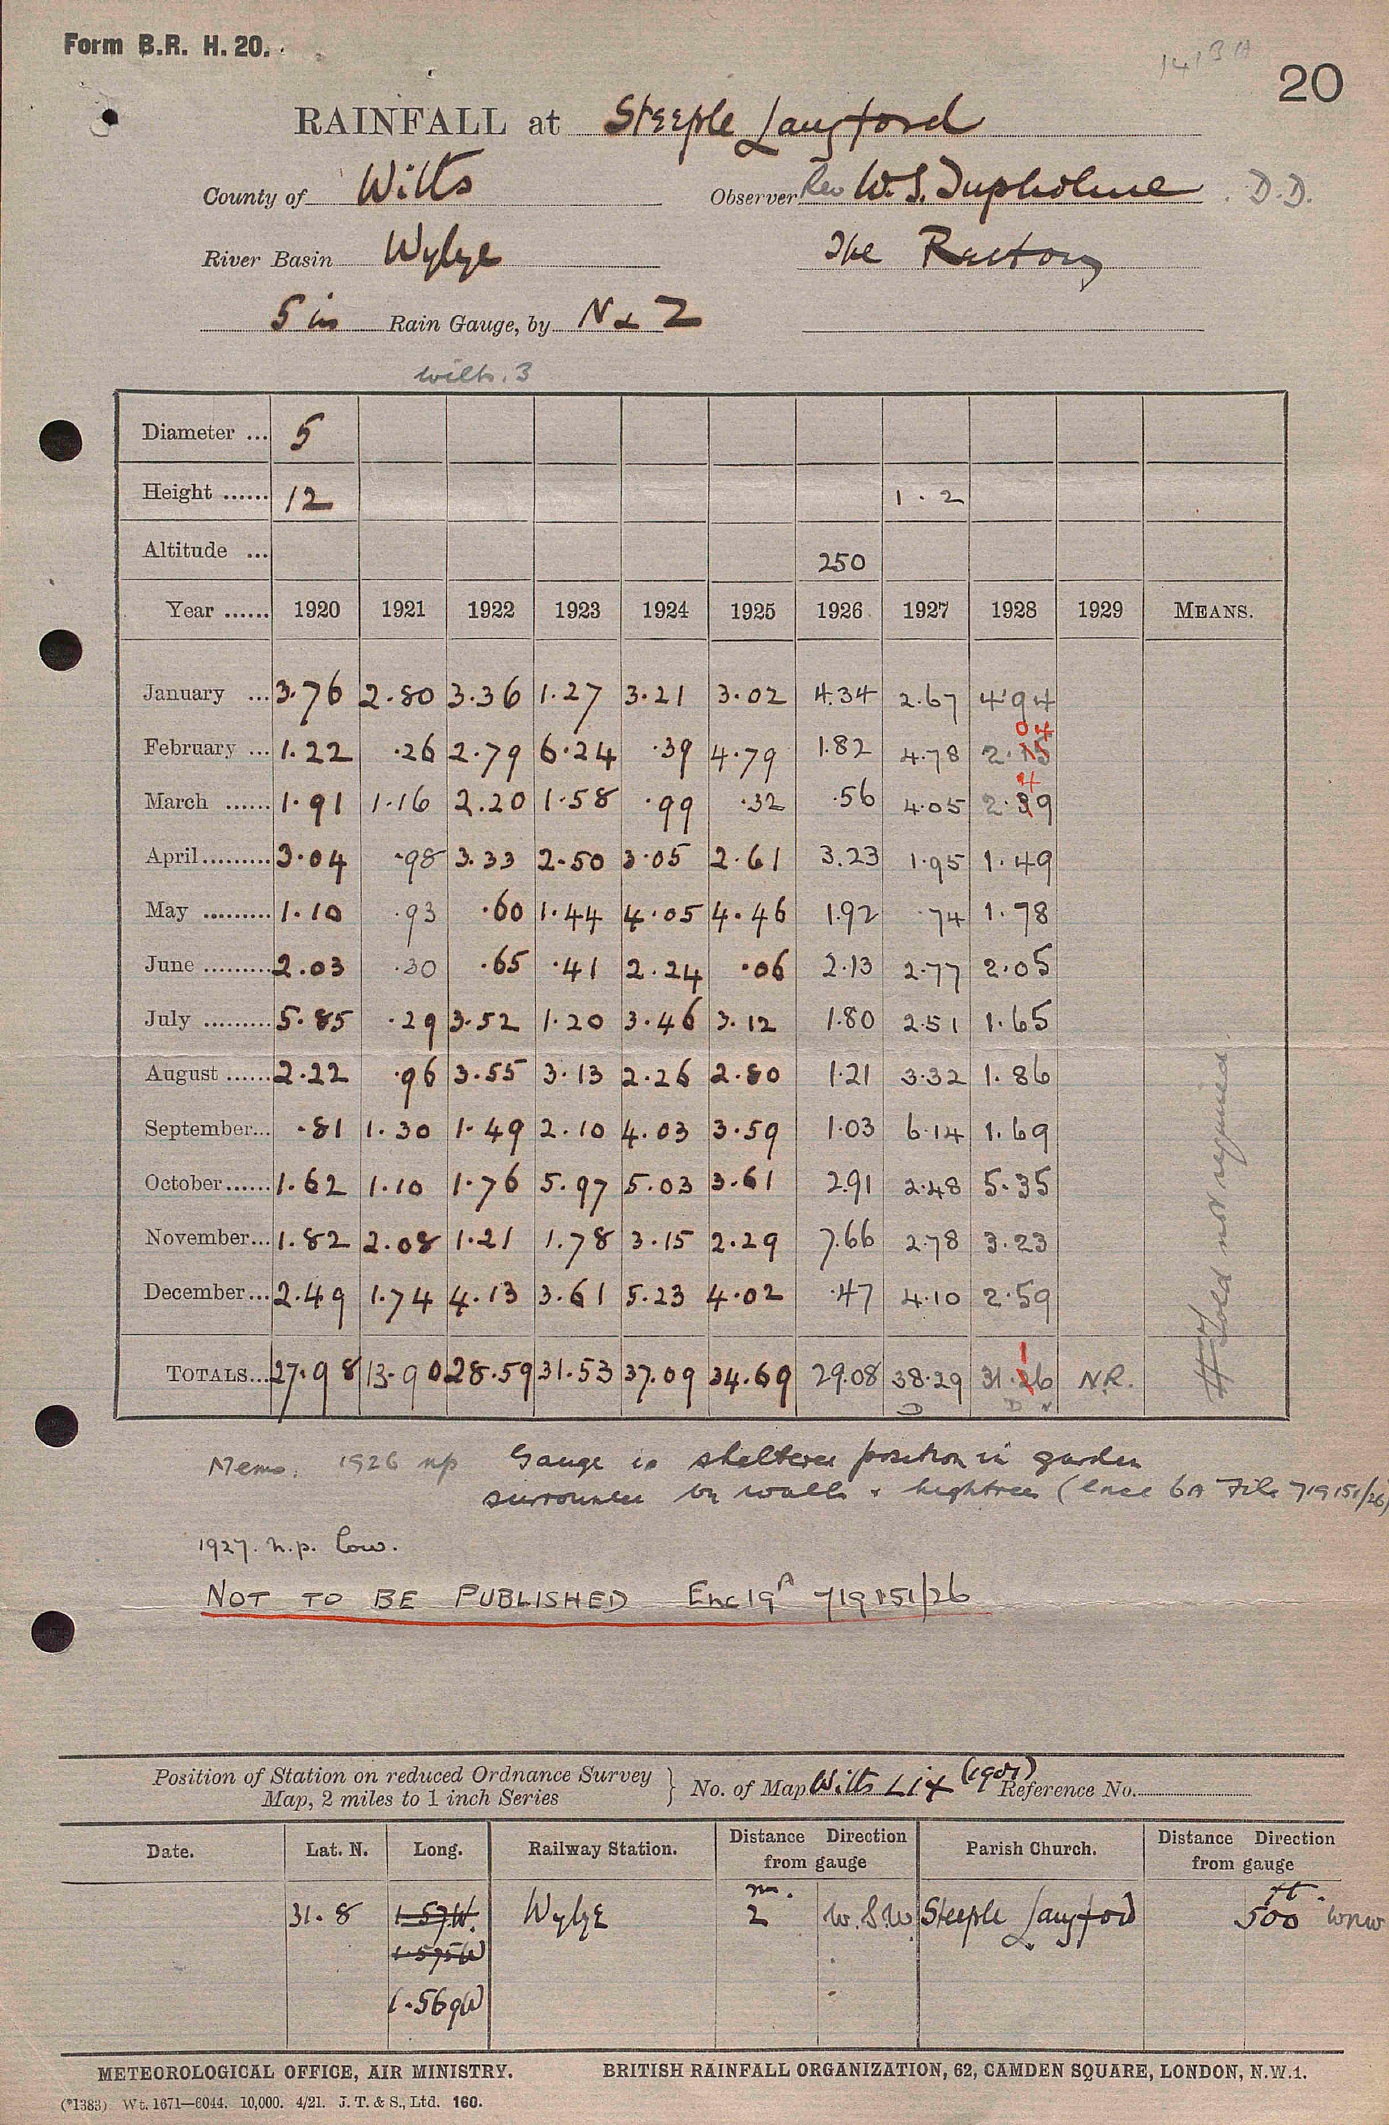 Form B.R. H. 20.
1413A
20
RAINFALL at Steeple Langford
County of Wilts Observer Rev W. S. Tupholme D.D.
River Basin Wylye The Rectory
5 in Rain Gauge, by N & Z
Wilts. 3
Diameter ... 5
Height ...... 12 1.2
Altitude ... 250
Year ...... 1920 1921 1922 1923 1924 1925 1926 1927 1928 1929 MEANS.
January ... 3.76 2.80 3.36 1.27 3.21 3.02 4.34 2.67 4.94
04
February ... 1.22 .26 2.79 6.24 .39 4.79 1.82 4.78 2.15
4
March ...... 1.91 1.16 2.20 1.58 .99 .32 .56 4.05 2.39
April ......... 3.04 .98 3.33 2.50 3.05 2.61 3.23 1.95 1.49
May ......... 1.10 .93 .60 1.44 4.05 4.46 1.92 .74 1.78
June ......... 2.03 .30 .65 .41 2.24 .06 2.13 2.77 2.05
July ......... 5.85 .29 3.52 1.20 3.46 3.12 1.80 2.51 1.65
August ...... 2.22 .96 3.55 3.13 2.26 2.80 1.21 3.32 1.86
September... .81 1.30 1.49 2.10 4.03 3.59 1.03 6.14 1.69
October...... 1.62 1.10 1.76 5.97 5.03 3.61 2.91 2.48 5.35
November... 1.82 2.08 1.21 1.78 3.15 2.29 7.66 2.78 3.23
December... 2.49 1.74 4.13 3.61 5.23 4.02 .47 4.10 2.59
1
TOTALS... 27.98 13.90 28.59 31.53 37.09 34.69 29.08 38.29 31.26 N.R.
D D
Told not required.
Memo. 1926 np Gauge in sheltered position in garden
surrounded by walls & high trees (Encl 6A File 719151/26)
1927. n.p. low.
NOT TO BE PUBLISHED Enc 19A 719151/26
Position of Station on reduced Ordnance Survey
Map, 2 miles to 1 inch Series } No. of Map Wilts Lix (1901) Reference No.
Date. Lat. N. Long. Railway Station. Distance Direction from gauge Parish Church. Distance Direction from gauge
m. ft.
31.8 1.57W. Wylye 2 W.S.W Steeple Langford 500 WNW
1.575W
1.569W
METEOROLOGICAL OFFICE, AIR MINISTRY. BRITISH RAINFALL ORGANIZATION, 62, CAMDEN SQUARE, LONDON, N.W.1.
(*1383) Wt. 1671—6044. 10,000. 4/21. J. T. & S., Ltd. 160.